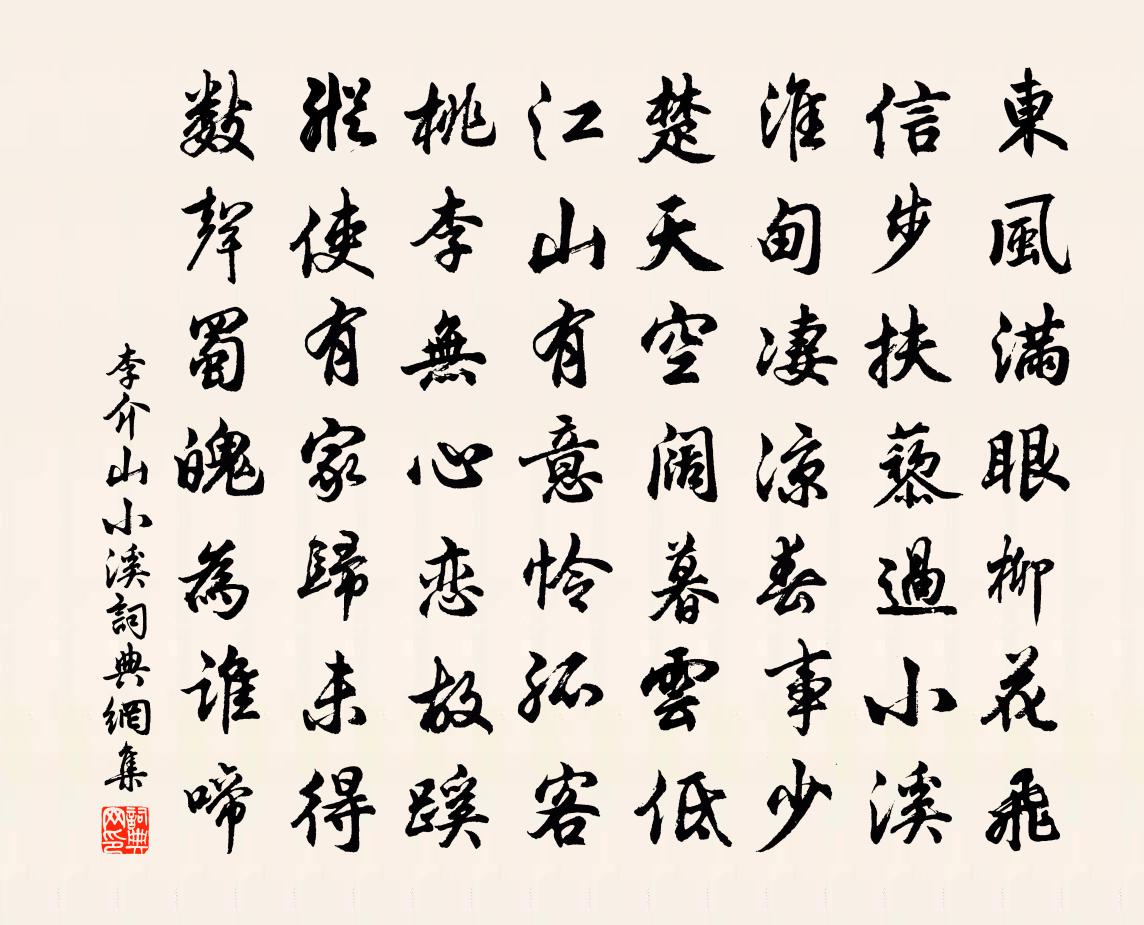 東風滿眼柳花飛
信步扶藜過小溪
淮甸凄涼春事少
楚天空闊暮雲低
江山有意憐孤客
桃李無心恋故蹊
縱使有家歸未得
數聲蜀魄為誰啼
李介山小溪詞典網集
詞典
网印